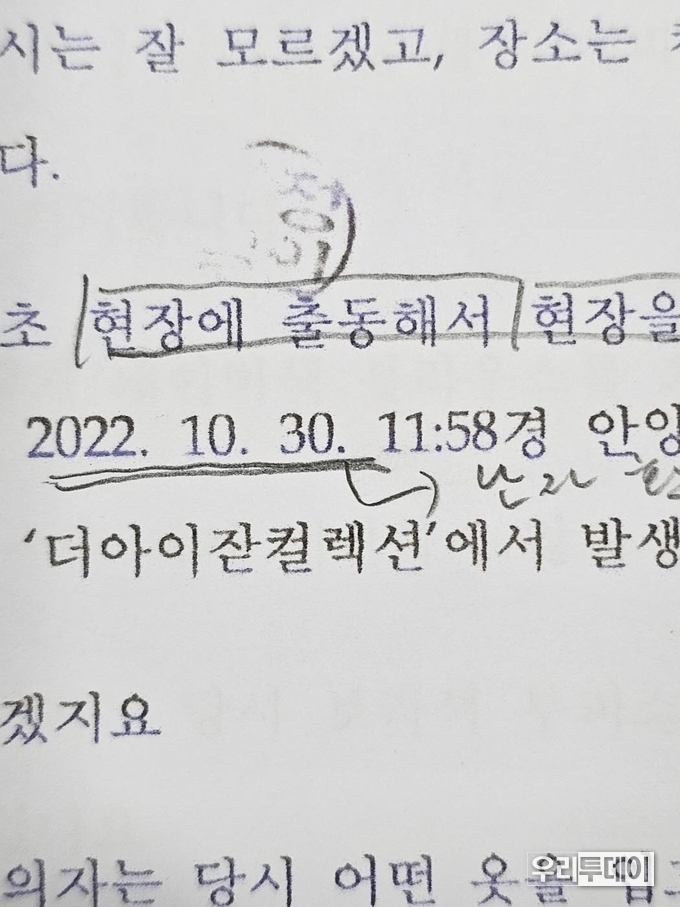 시는 잘 모르겠고, 장소는
다.
초 현장에 출동해서 현장을
2022. 10. 30. 11:58경 안양
'더아이잗컬렉션'에서 발생
겠지요
의자는 당시 어떤 옷을
우리투데이